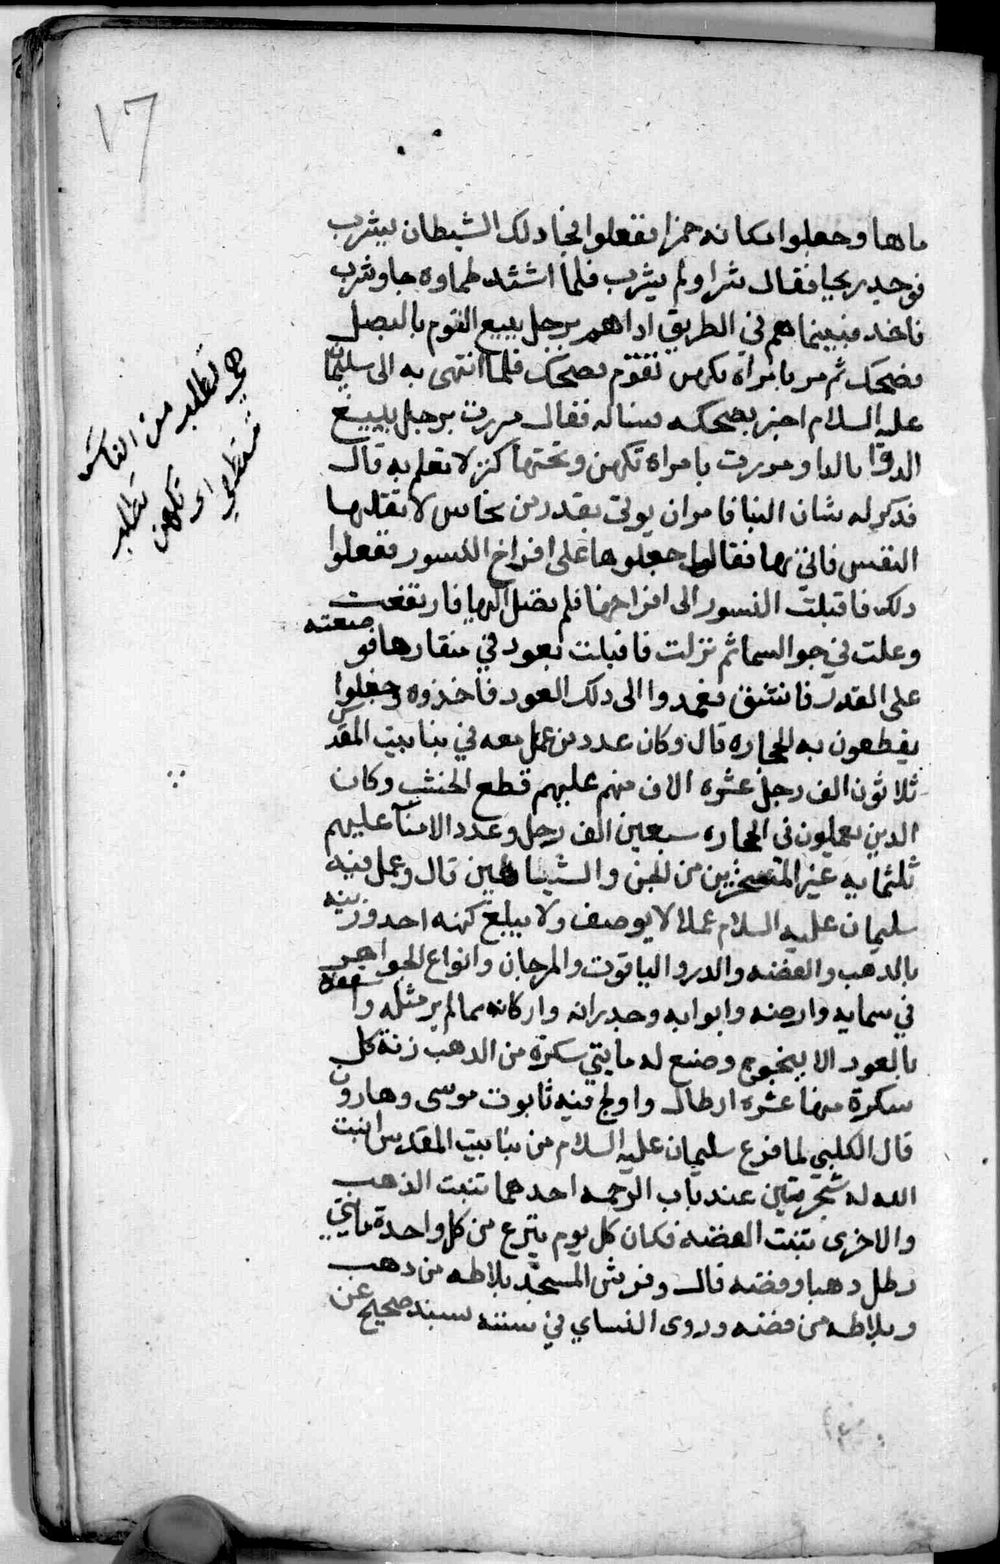 ١٦
ماها وجعلوا مكانه خمرا ففعلوا فجا ذلك الشيطان ليشرب
فوجد ريحا فقال شرا ولم يشرب فلما اشتد ظماوه جا وشرب
فاخذ فبينما هم في الطريق اذا هم برجل يبيع الثوم بالبصل
فضحك ثم مر بامراة تكهن لقوم فضحك فلما انتهى به الى سليمان
عليه السلام اخبر بضحكه فساله فقال مررت برجل يبيع
الدوا بالدا ومررت بامراة تكهن وتحتها كنز لا تعلم به قال
فذكر له شان البنا فامر ان يوتى بقدر من نحاس لا تقلها
النفس فاتي بها فقال اجعلوها على افراخ النسور ففعلوا
ذلك فاقبلت النسور الى افراخها فلم تصل اليها فارتفعت
وعلت في جو السما ثم نزلت فاقبلت بعود في منقارها فوضعته
على القدر فانشق فعمدوا الى ذلك العود فاخذوه وجعلوا
يقطعون به الحجاره قال وكان عدد من عمل معه في بنا بيت المقدس
ثلاثون الف رجل عشره الاف منهم عليهم قطع الخشب وكان
الذين يعملون في الحجاره سبعين الف رجل وعدد الامنا عليهم
ثلثمايه غير المتسخرين من الجن والشياطين قال وعمل فيه
سليمان عليه السلام عملا لا يوصف ولا يبلغ كنهه احد وزينه
بالذهب والفضه والدر والياقوت والمرجان وانواع الجواهر
في سمايه وارضه وابوابه وجدرانه واركانه مما لم ير مثله وسقفه
بالعود الالينجوج وصنع له مايتي سكرة من الذهب زنة كل
سكرة منها عشرة ارطال واولج فيه تابوت موسى وهارون
قال الكلبي لما فرغ سليمان عليه السلام من بنا بيت المقدس انبت
الله له شجرتين عند باب الرحمه احدهما تنبت الذهب
والاخرى تنبت الفضه فكان كل يوم ينزع من كل واحدة مايتي
رطل ذهبا وفضه قال وفرش المسجد بلاطه من ذهب
وبلاطه من فضه وروى النساي في سننه بسند صحيح عن
من الناس
تطلب
تكهن